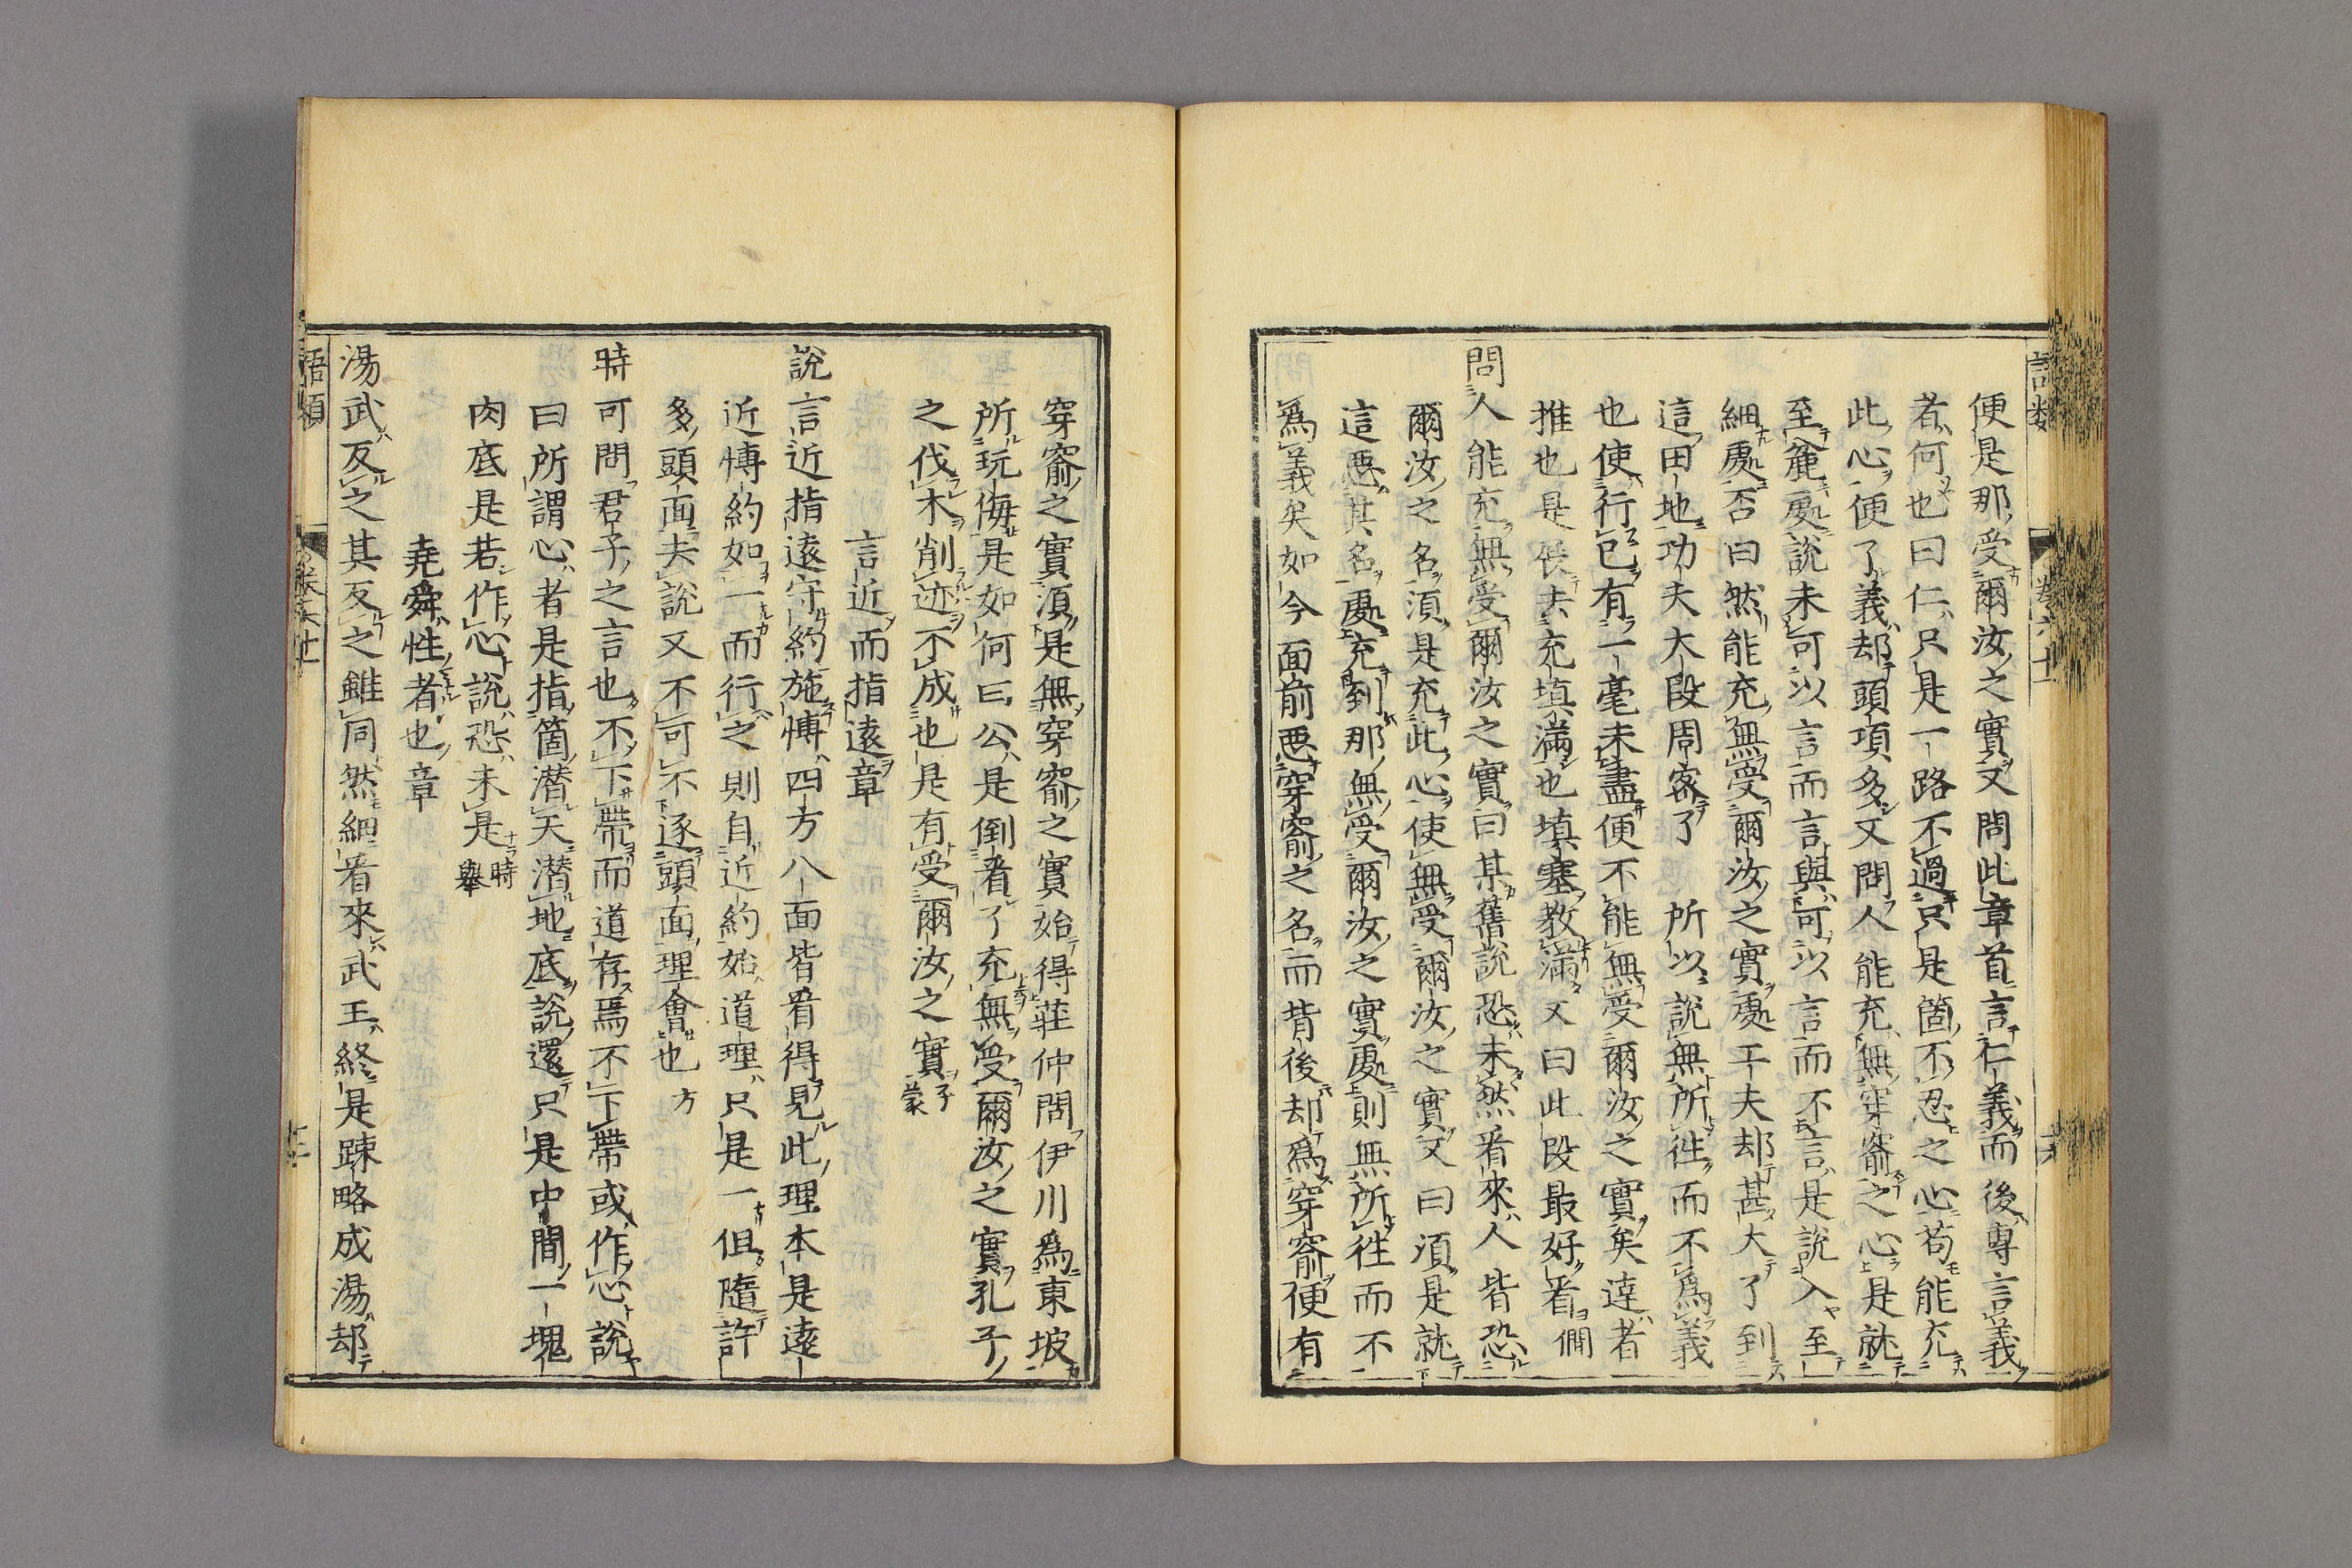 便是那受爾汝之實又問此章首言仁義而後專言義
者何也曰仁只是一路不過只是箇不忍之心苟能充
此心便了義却頭項多又問人能充無穿窬之心是就
至麄處說未可以言而言與可以言而不言是說入至
細處否曰然能充無受爾汝之實處工夫却甚大了到
這田地功夫大段周密了 所以說無所徃而不爲義
也使行已有一毫未盡便不能無受爾汝之實矣達者
推也是展去充填滿也填塞教滿又曰此段最好看僩
問人能充無受爾汝之實曰某舊說恐未然看來人皆恐
爾汝之名須是充此心使無受爾汝之實又曰須是就
這惡其名處充到那無受爾汝之實處則無所徃而不
爲義矣如今面前惡穿窬之名而背後却爲穿窬便有
穿窬之實須是無穿窬之實始得莊仲問伊川爲東坡
所玩侮是如何曰公是倒看了充無受爾汝之實孔子
之伐木削迹不成也是有受爾汝之實子蒙
言近而指遠章
說言近指遠守約施博四方八面皆看得見此理本是遠
近博約如一而行之則自近約始道理只是一但隨許
多頭面去說又不可不逐頭面理會也方
時可問君子之言也不下帶而道存焉不下帶或作心說
曰所謂心者是指箇潜天潜地底說還只是中間一塊
肉底是若作心說恐未是時舉
堯舜性者也章
湯武反之其反之雖同然細看來武王終是踈略成湯却
語類
卷六十